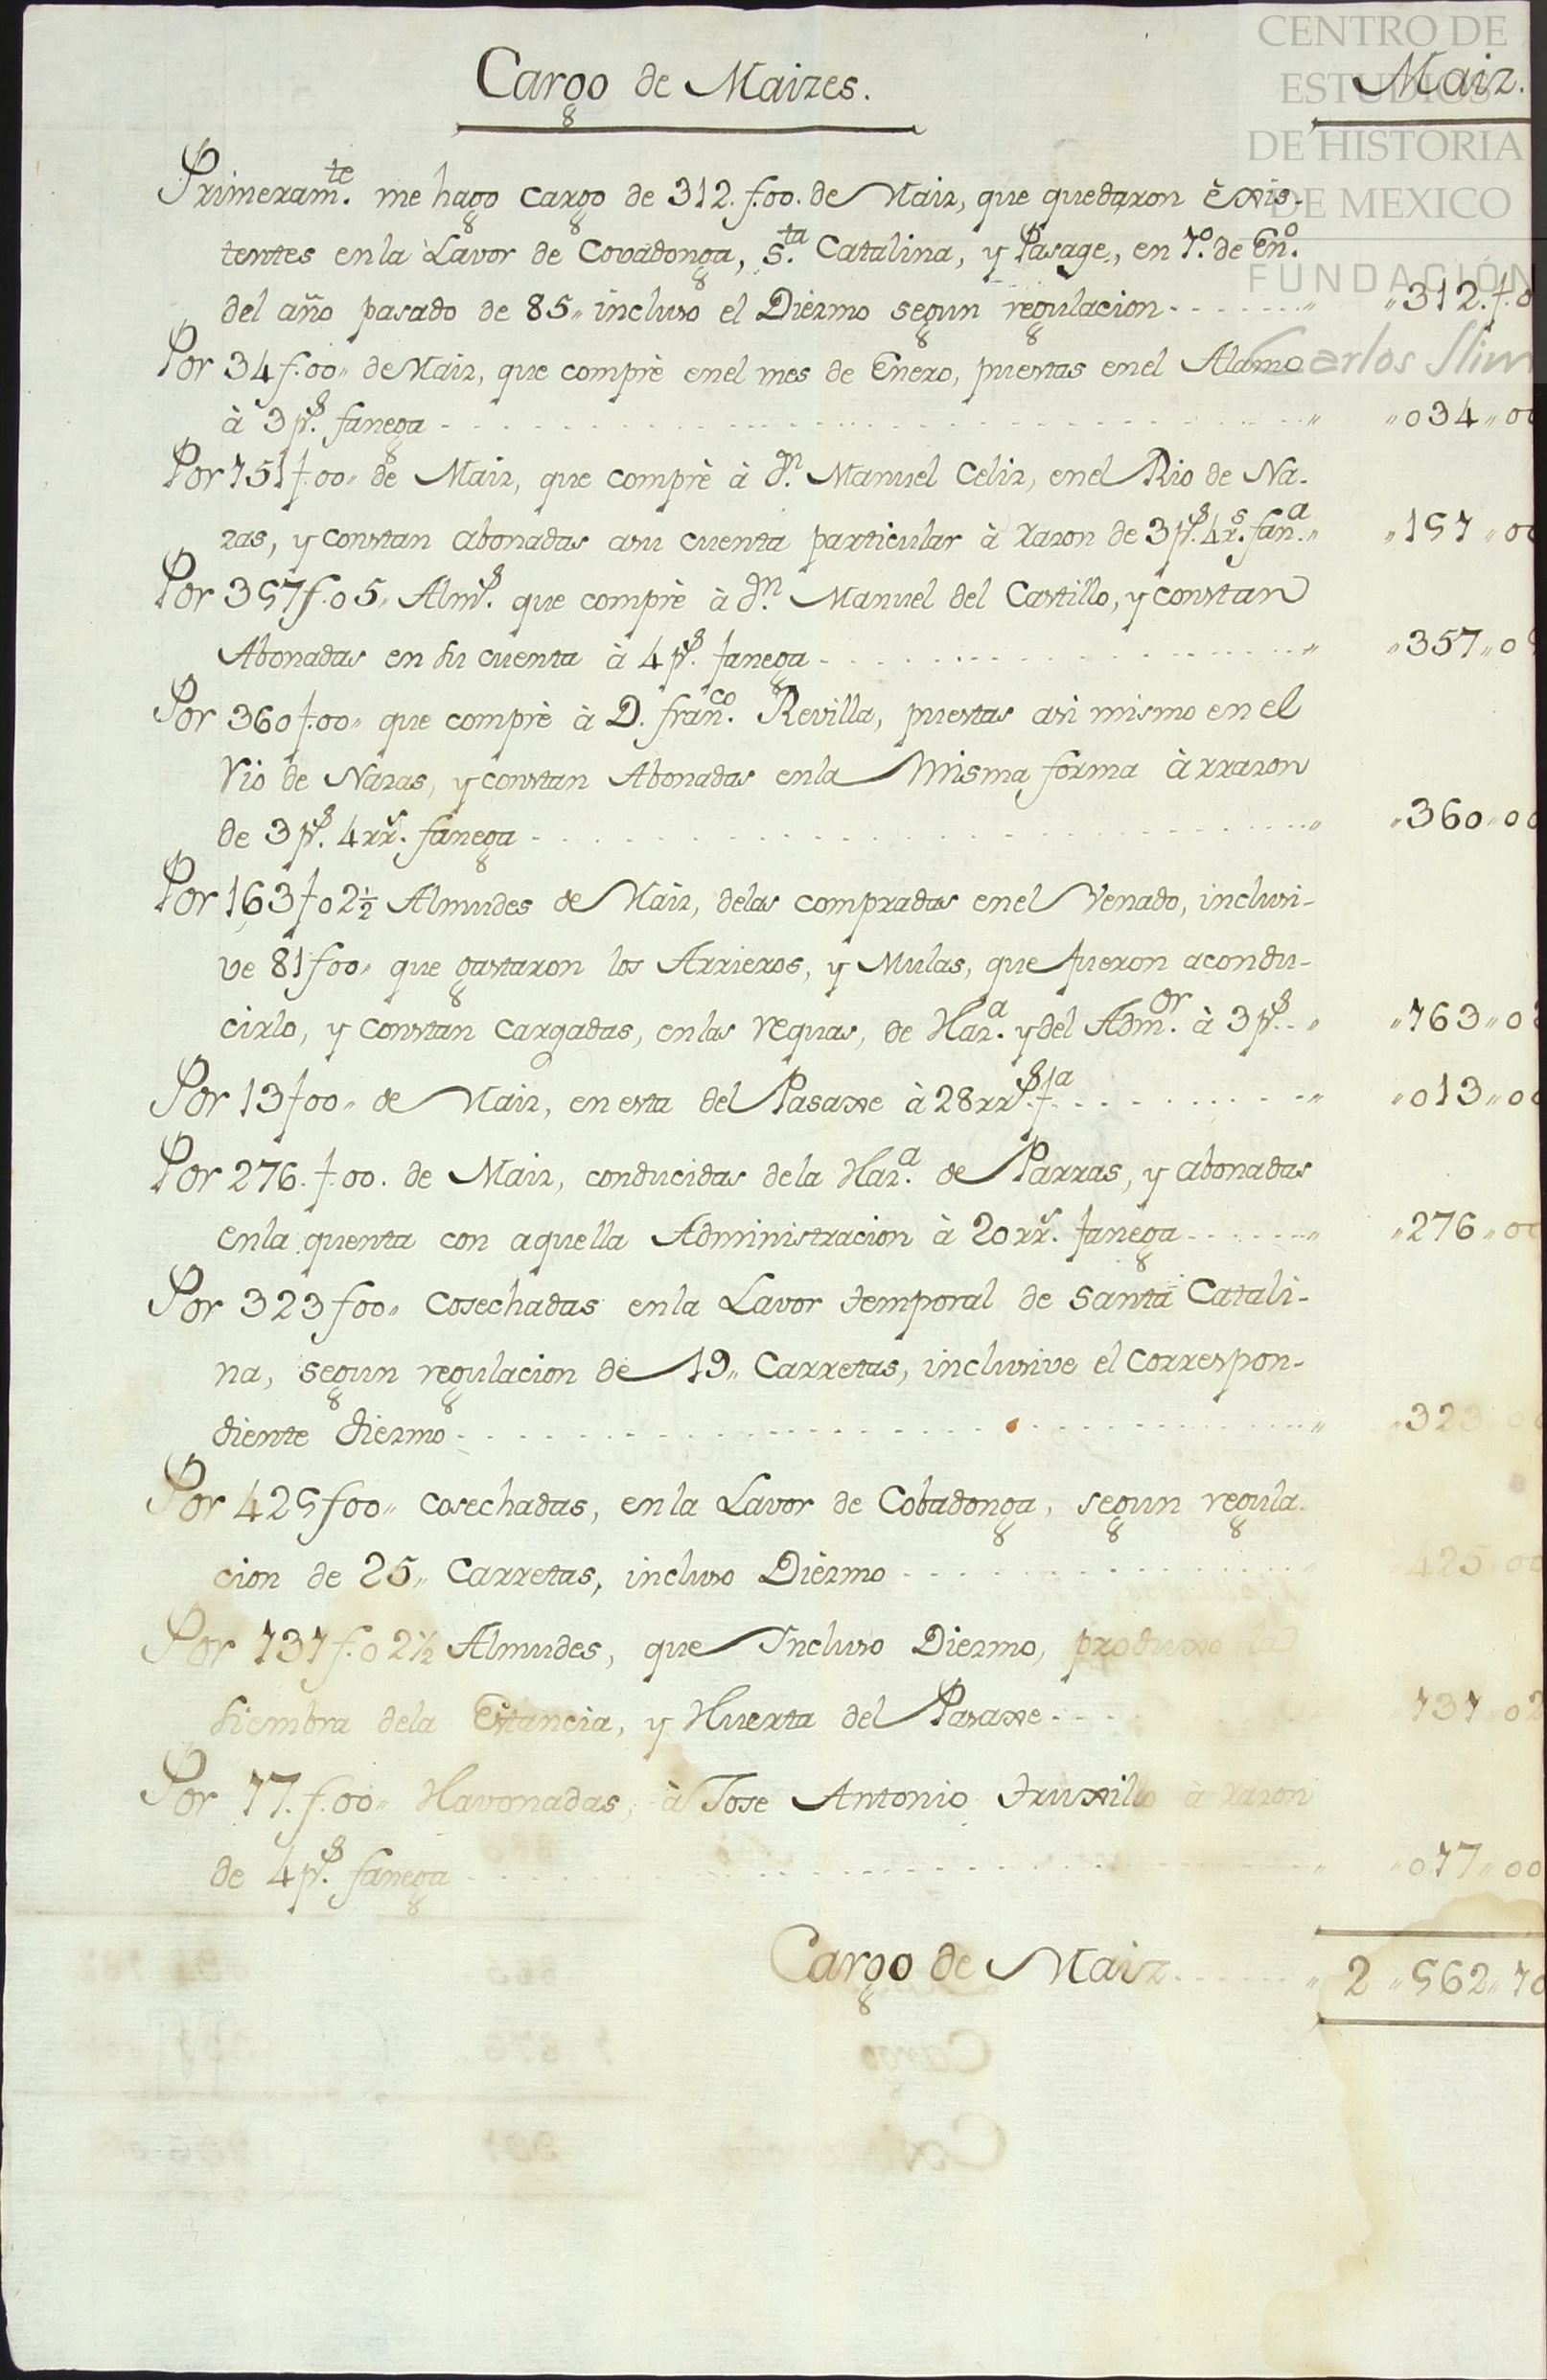 CENTRO DE
ESTUDIOS
DE HISTORIA
DE MEXICO
FUNDACIÓN
Carlos Slim
Cargo de Maizes. Maiz.
Primeram.te me hago cargo de 312. f.00. de Maiz, que quedaron èxis-
tentes en la Lavor de Covadonga, S.ta Catalina, y Pasage, en 1.o de En.o
del año pasado de 85,, incluso el Diezmo segun regulacion - - - - - - ,, ,,312. f. 0
Por 34 f.00,, de Maiz, que comprè en el mes de Enero, puestas en el Alamo
à 3 p.s fanega - - - - - - ,, ,,034,,00
Por 151 f.00,, de Maiz, que comprè à d.n Manuel Celiz, en el Rio de Na-
zas, y constan abonadas asu cuenta particular à razon de 3 p.s 4 r.s fan.a ,, ,,151,,00
Por 357 f.05,, Alm.s que comprè à d.n Manuel del Castillo, y constan
Abonadas en su cuenta à 4 p.s fanega - - - - - - ,, ,,357,,0
Por 360 f.00,, que comprè à D. fran.co Revilla, puestas asi mismo en el
Rio de Nazas, y constan Abonadas en la Misma forma à rrazon
de 3 p.s 4 rr.s fanega - - - - - - ,, ,,360,,00
Por 163 f 02½ Almudes de Maiz, delas compradas en el Venado, inclusi-
ve 81 f00,, que gastaron los Arrieros, y Mulas, que fueron acondu-
cirlo, y constan cargadas, en las requas, de Haz.a y del Adm.or à 3 p.s - - ,, ,,163,,02
Por 13 f00,, de Maiz, en esta del Pasaxe à 28 rr.s f.a - - - - - - ,, ,,013,,00
Por 276. f.00. de Maiz, conducidas dela Haz.a de Parras, y abonadas
en la quenta con aquella Administracion à 20 rr.s fanega - - - - - - ,, ,,276,,00
Por 323 f00,, Cosechadas en la Lavor temporal de Santa Catali-
na, segun regulacion de 19,, Carretas, inclusive el Correspon-
diente diezmo - - - - - - ,, ,,323,,00
Por 425 f00,, cosechadas, en la Lavor de Cobadonga, segun regula-
cion de 25,, Carretas, incluso Diezmo - - - - - - 425,,00
Por 131 f.02½ Almudes, que Incluso Diezmo, produxo la
siembra dela Estancia, y Huerta del Pasaxe - - - - 131,,02
Por 17. f.00,, Havonadas, à Jose Antonio truxillo à razon
de 4 p.s fanega - - - - - - ,, ,,017,,00
Cargo de Maiz - - - - - - ,, 2,,562,,10